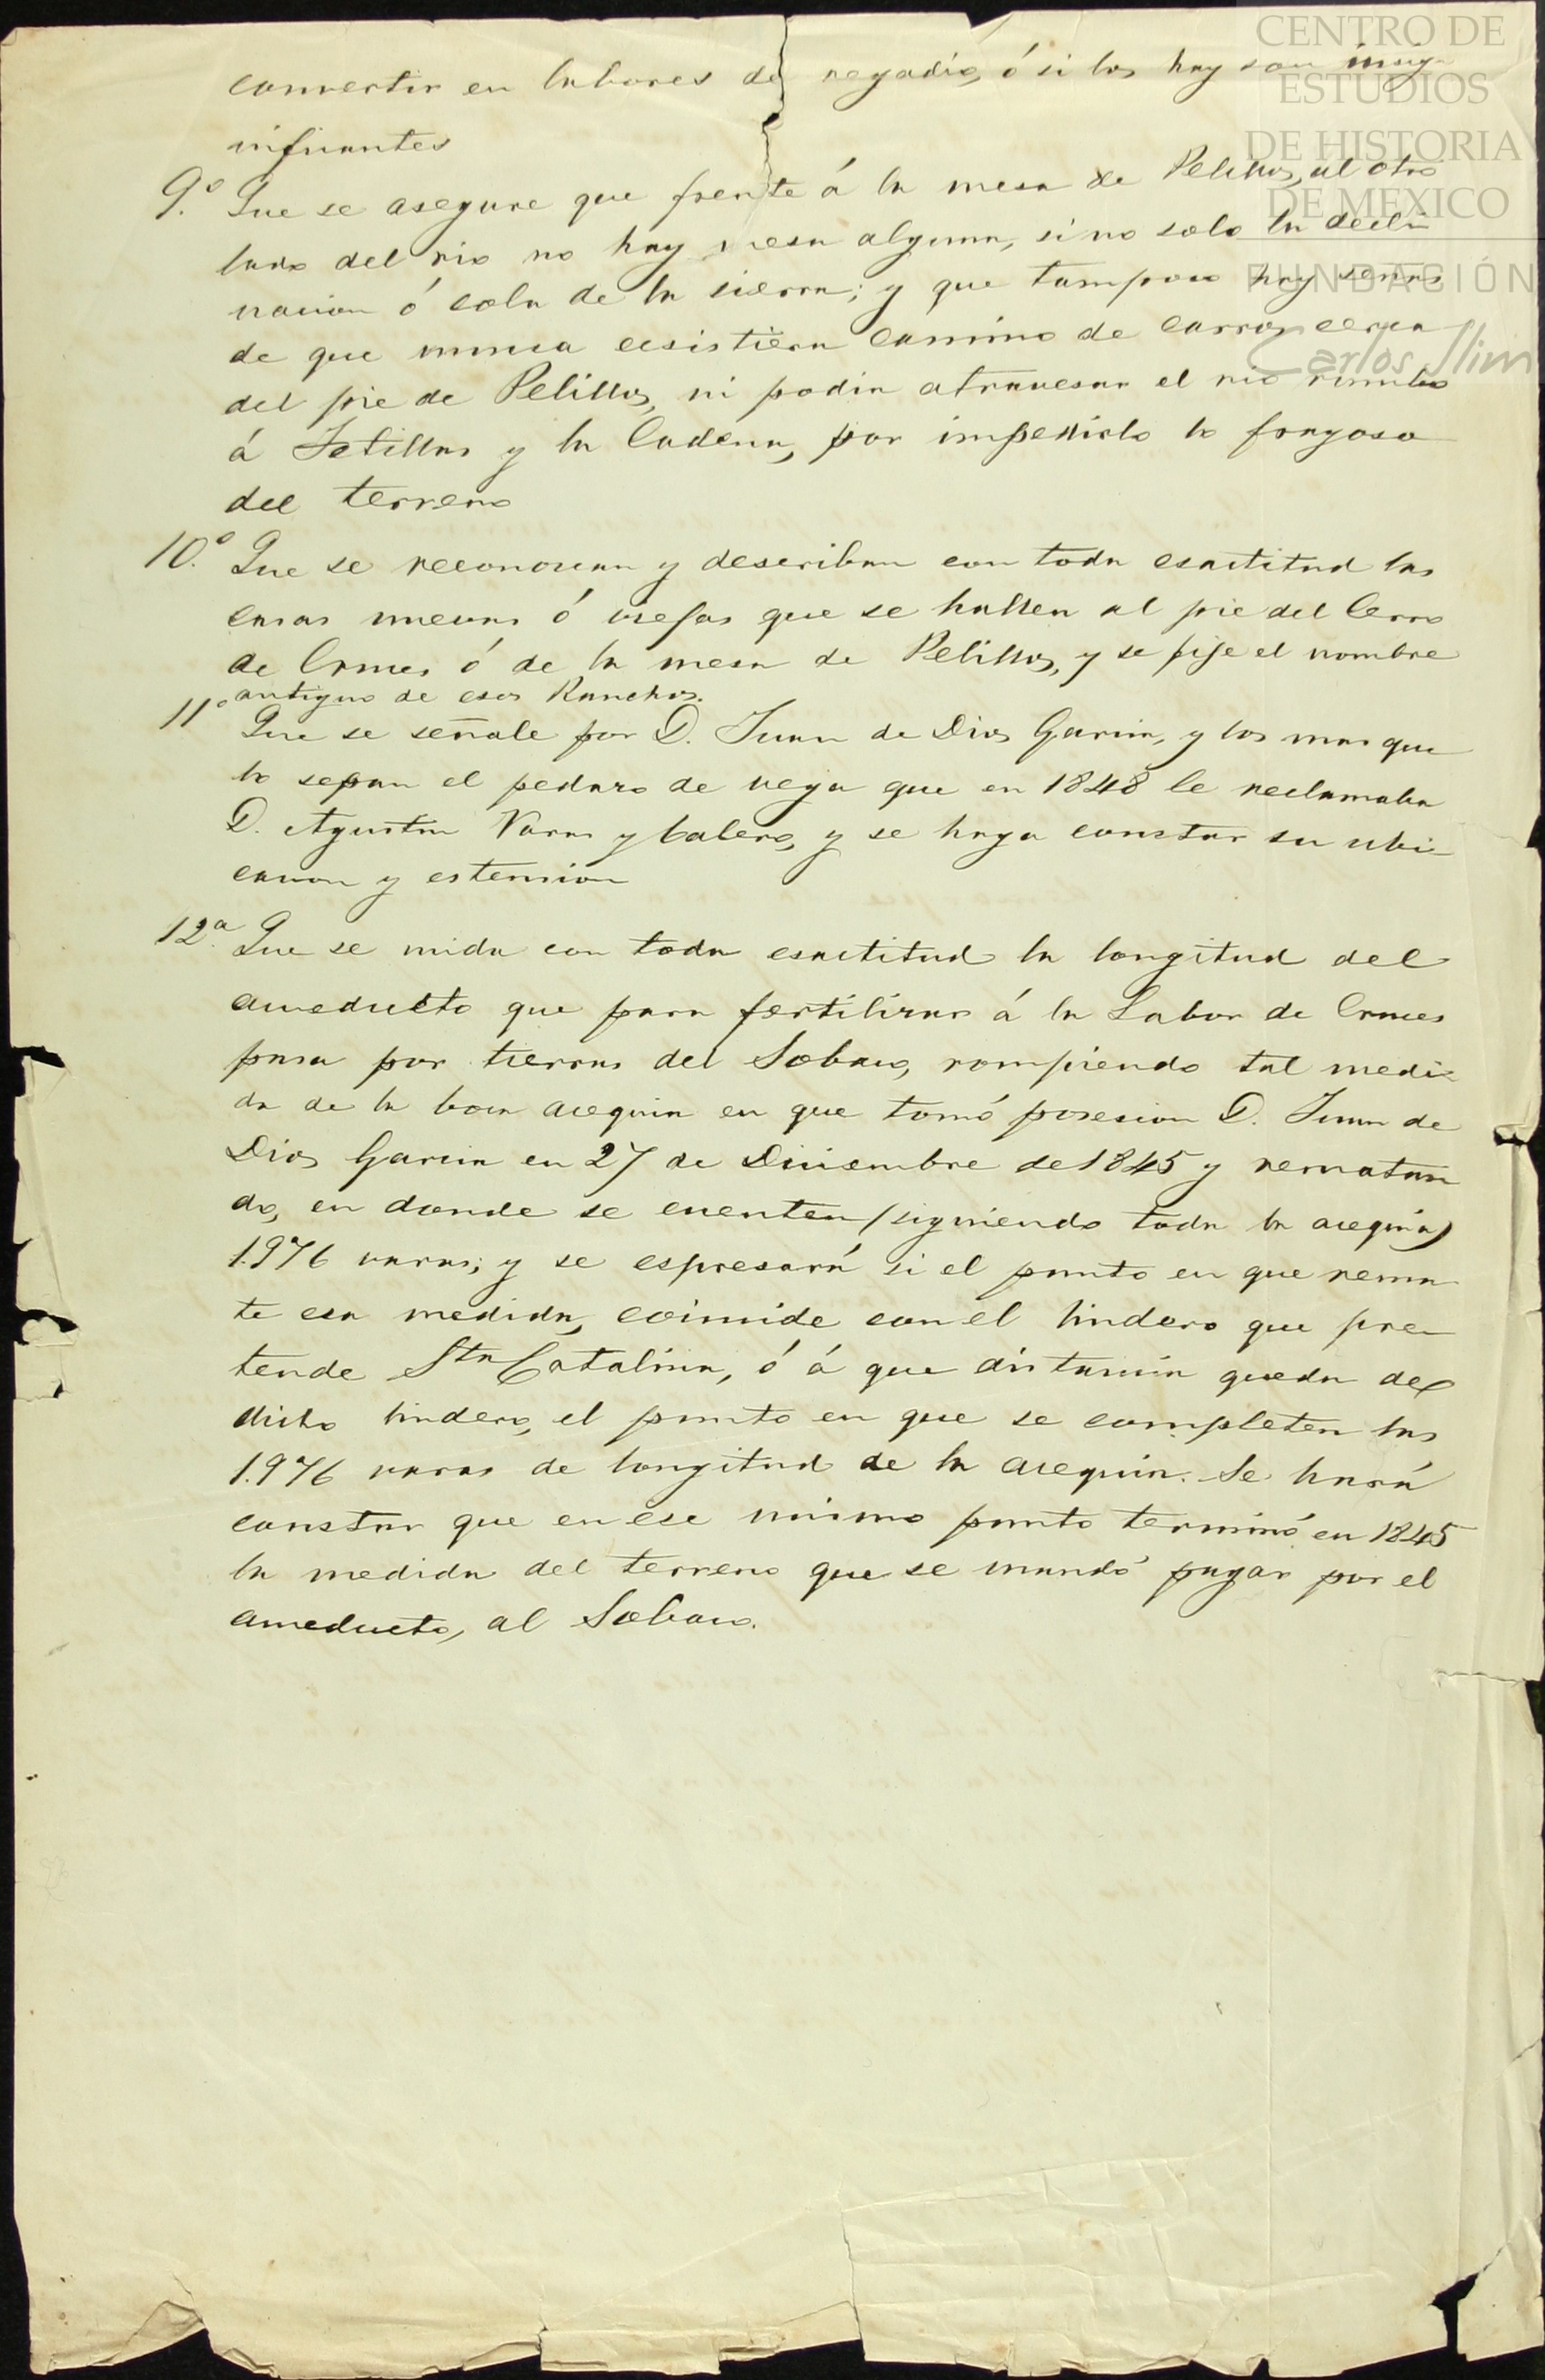 convertir en labores de regadio, ó si los hay son insig
nificantes
9.º Que se asegure que frente á la mesa de Pelillos, al otro
lado del rio no hay mesa alguna, si no solo la decli
nacion ó cola de la sierra; y que tampoco hay señas
de que nunca ecsistiera camino de carros cerca
del pie de Pelillos, ni podia atravesar el rio rumbo
á Tetillas y la Cadena, por impedirlo lo fragoso
del terreno
10.º Que se reconozcan y describan con toda esactitud las
casas nuevas ó viejas que se hallen al pie del Cerro
de Cruces ó de la mesa de Pelillos, y se fije el nombre
antiguo de esos Ranchos.
11º Que se señale por D. Juan de Dios Garcia, y los mas que
lo sepan el pedazo de vega que en 1848 le reclamaba
D. Agustin Varas y balero, y se haga constar su ubi
cacion y estension
12.ª Que se mida con toda esactitud la longitud del
acueducto que para fertilizar á la Labor de Cruces
pasa por tierras del Sobaco, rompiendo tal medi
da de la boca acequia en que tomó posesion D. Juan de
Dios Garcia en 27 de Diciembre de 1845 y rematan
do, en donde se cuenten (siguiendo toda la acequia)
1.976 varas; y se espresará si el punto en que rema
te esa medida, coincide con el lindero que pre
tende Sta Catalina, ó á que distancia queda del
dicho lindero, el punto en que se completen las
1.976 varas de longitud de la acequia. Se hará
constar que en ese mismo punto terminó en 1845
la medida del terreno que se mandó pagar por el
acueducto, al Sobaco.
CENTRO DE
ESTUDIOS
DE HISTORIA
DE MEXICO
FUNDACIÓN
Carlos Slim